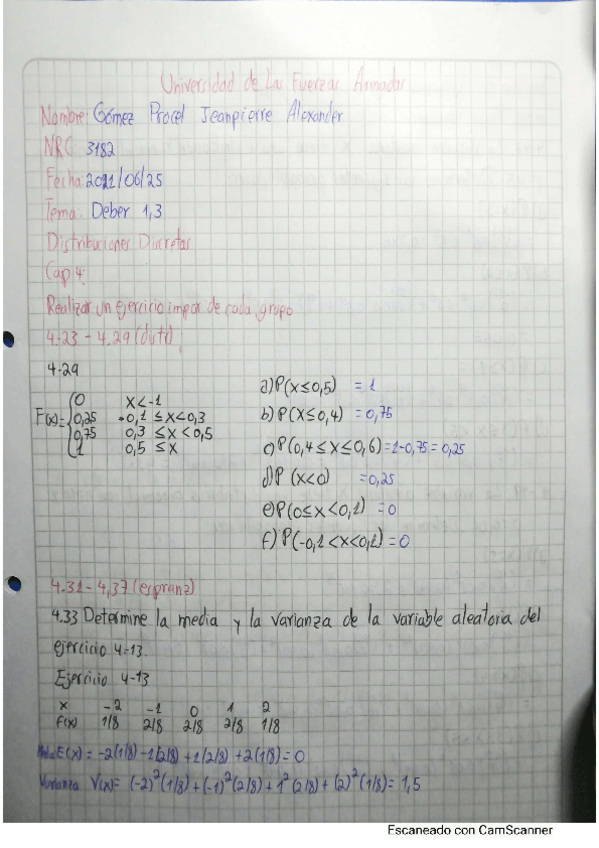 Universidad de Las Fuerzas Armadas
Nombre: Gómez Procel Jeanpierre Alexander
NRC 3182
Fecha: 2021/06/25
Tema: Deber 1,3
Distribuciones Discretas
Cap 4:
Realizar un ejercicio impar de cada grupo
4.23 - 4.29 (distr) ;
4-29
F(x)= { 0 x<-1
0,25 -0,1 ≤ x<0,3
0,75 0,3 ≤ x < 0,5
1 0,5 ≤ x
a) P(x≤0,5) = 1
b) P(x≤0,4) = 0,75
c) P(0,4 ≤ x ≤ 0,6) = 1-0,75 = 0,25
d) P (x<0) = 0,25
e) P(0≤x<0,1) = 0
f.) P(-0,1<x<0,1) = 0
4.31 - 4,37 (espranz)
4.33 Determine la media y la varianza de la variable aleatoria del
ejercicio 4-13.
Ejercicio 4-13
x -2 -1 0 1 2
f(x) 1/8 2/8 2/8 2/8 1/8
Media E(x) = -2(1/8) -1(2/8) + 1(2/8) + 2(1/8) = 0
Varianza V(x) = (-2)²(1/8) + (-1)²(2/8) + 1²(2/8) + (2)²(1/8) = 1,5
Escaneado con CamScanner